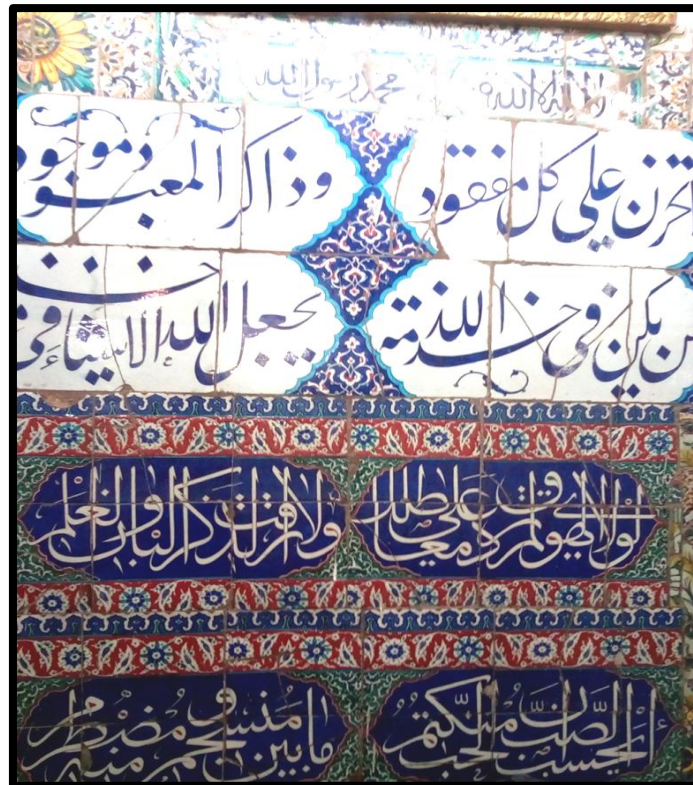 لا اله الا الله محمد رسول الله
تحزن علي كل مفقود وذاكر المعبود موجود
يكن في خدمة الله يجعل الله الاشياء في
لولا الهوى لم ترق دمعا على طلل ولا ارقت لذكر البان والعلم
أيحسب الصب ان الحب منكتم ما بين منسجم منه ومضطرم